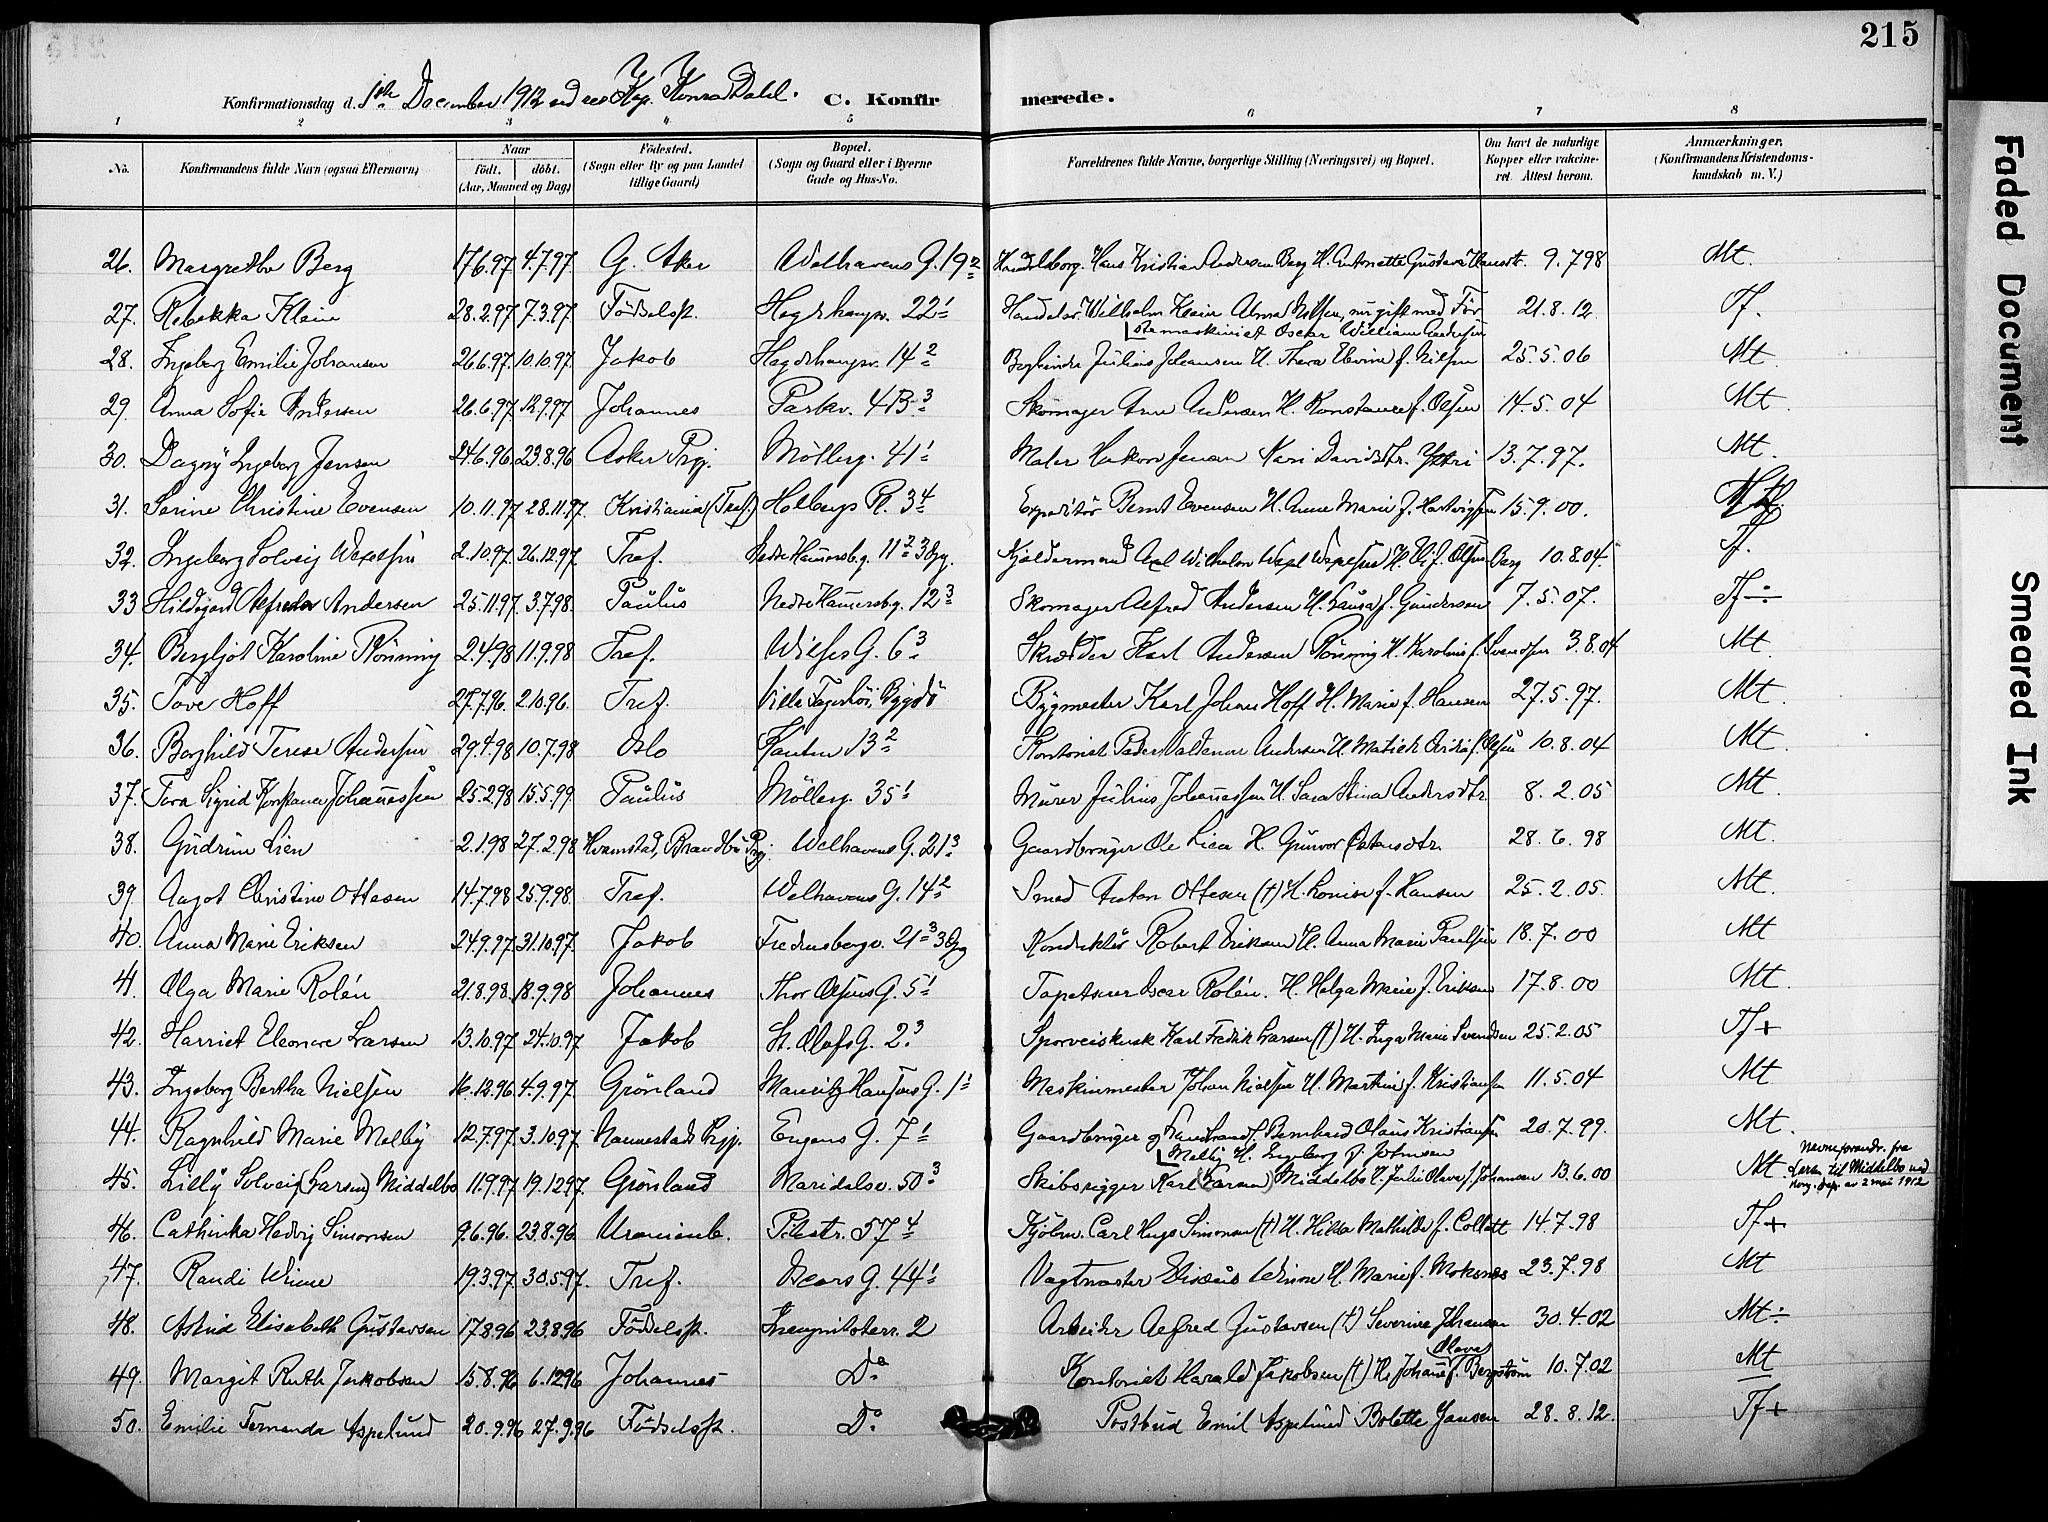 215
Konfirmationsdag d. 1ste December 1912 ved res Kap. Konrad Dahl. C. Konfirmerede.
1 2 3 4 5 6 7 8
No. Konfirmandens fulde Navn (ogsaa Efternavn) Naar födt. döbt. (Aar, Maaned og Dag) Födested. (Sogn eller By og paa Landet tillige Gaard) Bopæl. (Sogn og Gaard eller i Byerne Gade og Hus-No. Forældrenes fulde Navne, borgerlige Stilling (Næringsvei) og Bopæl. Om havt de naturlige Kopper eller vakcineret. Attest herom. Anmærkninger. (Konfirmandens Kristendomskundskab m. V.)
26. Margrethe Berg 17.6.97 4.7.97 G. Aker Welhavens G. 19 2 Handelsborg. Hans Kristian Andersen Berg H. Antonette Gustava Hansdtr. 9.7.98 Mt.
27. Rebekka Klein 28.2.97 7.3.97 Födselsst. Hegdehaugsv. 22 1 Handelsr. Wilhelm Klein Alma Nilsen, nu gift med Förstemaskinist Oscar William Andersen 21.8.12. Tf.
28. Ingeborg Emilie Johansen 26.6.97 10.10.97 Jakob Hegdehaugsv. 14 2 Bogbinder Julius Johansen H. Thora Elvine f. Nilsen 25.5.06 Mt.
29. Anna Sofie Andersen 26.6.97 12.9.97 Johannes Parkv. 4B 3 Skomager Arne Andersen H. Konstance f. Olsen 14.5.04 Mt.
30. Dagny Ingeborg Jensen 24.6.96 23.8.96 Asker Prgj. Möllerg. 41 1 Maler Hakon Jensen Kari Davidsdtr. Yttri 13.7.97. Mt.
31. Sarine Christine Evensen 10.11.97 28.11.97 Kristiania (Tref.) Holbergs Pl. 3 4 Expeditör Bernt Evensen H. Anne Marie f. Hartvigsen 15.9.00.
32. Ingeborg Solveig Wexelsen 2.10.97 26.12.97 Tref. Nedre Hammersbg. 11 2 3 Opg. Kjeldermand Axel Wilhelm Wexelsen H. f. Olsen Berg 10.8.04. Tf.
33 Hildegard Alfreda Andersen 25.11.97 3.7.98. Paulus Nedre Hammersbg. 12 3 Skomager Alfred Andersen H. Laura f. Gundersen 7.5.07. Tf ÷
34. Bergljot Karoline Rönning 2.4.98 11.9.98 Tref. Wilses G. 6 3 Skrædder Karl Andersen Rönning H. Karoline f. Svendsen 3.8.04 Mt
35. Tove Hoff 27.7.96. 2.10.96. Tref. Villa Fagerhöi, Bygdö Bygmester Karl Johan Hoff H. Marie f. Hansen 27.5.97. Mt
36. Borghild Terese Andersen 29.4.98 10.7.98 Oslo 13 2 Kontorist Peder Valdemar Andersen H. f. Olsen 10.8.04 Mt.
37. Tora Sigrid Konstance Johannessen 25.2.98 15.5.99 Paulus Möllerg. 35 1 Murer Julius Johannessen H. Sara Stina Andersdtr. 8.2.05 Mt.
38. Gudrun Lien 2.1.98 27.2.98 Hvamstad, Brandbu Prgj. Welhavens G. 21 3 Gaardbruger Ole Lien H. Gunvor Östensdtr. 28.6.98 Mt.
39 Aagot Christine Ottesen 14.7.98 25.9.98. Tref. Welhavens G. 14 2 Smed Anton Ottesen (†) H. Lovise f. Hansen 25.2.05. Mt.
40. Anna Marie Eriksen 24.9.97 31.10.97 Jakob Fredensborgv. 21 3 3 Opg Konduktör Robert Eriksen H. Anna Marie Paulsen 18.7.00 Mt
41. Olga Marie Rolén 21.8.98. 18.9.98 Johannes Thor Olsens G. 5 1 Tapetserer Oscar Rolén. H. Helga Marie f. Eriksen 17.8.00 Mt.
42. Harriet Eleonore Larsen 13.10.97 24.10.97 Jakob St. Olafs G. 2 3 Sporveiskusk Karl Fredrik Larsen (†) H. Inga Marie Svendsen 25.2.05 Tf +
43. Ingeborg Bertha Nielsen 16.12.96 4.9.97. Grönland Mauritz Hansens G. 1 1 Maskinmester Johan Nielsen H. Martine f. Kristiansen 11.5.04 Mt
44. Ragnhild Marie Melby 12.7.97 3.10.97. Nannestads Prgj. Eugens G. 7 1 Gaardbruger og Bernhard Olaus Kristiansen Melby H. Ingeborg f. Johnsen 20.7.99. Mt.
45. Lilly Solveig (Larsen) Middelbo 11.9.97 19.12.97. Grönland Maridalsv. 50 3 Skibsrigger Karl (Larsen) Middelbo H. Julie Olava f. Johansen 13.6.00 Mt. Navneforandr. fra Larsen til Middelbo ved kong. dep. av 2 mai 1912
46. Cathinka Hedvig Simonsen 9.6.96. 23.8.96. Uranienb. Pilestr. 57 4 Kjöbm. Carl Hugo Simonsen (†) H. Hilda Mathilde f. Collett 14.7.98 Tf +
47. Randi Winne 19.3.97 30.5.97. Tref. Oscars G. 44 1 Vagtmester Elisæus Winne H. Marie f. Moksnes 23.7.98 Mt
48. Astrid Elisabeth Gustavsen 17.8.96 23.8.96 Födselsst. Incognitoterr. 2 Arbeider Alfred Gustavsen (†) Severine Johansen 30.4.02 Mt ÷
49. Margit Ruth Jakobsen 15.8.96 6.12.96 Johannes Do Kontorist Harald Jakobsen (†) H. Johanne Olava f. Bergström 10.7.02 Mt
50. Emilie Fernanda Aspelund 20.9.96 27.9.96 Födselsst. Do Postbud Emil Aspelund Bolette Jansen 28.8.12. Tf +
Faded Document
Smeared Ink